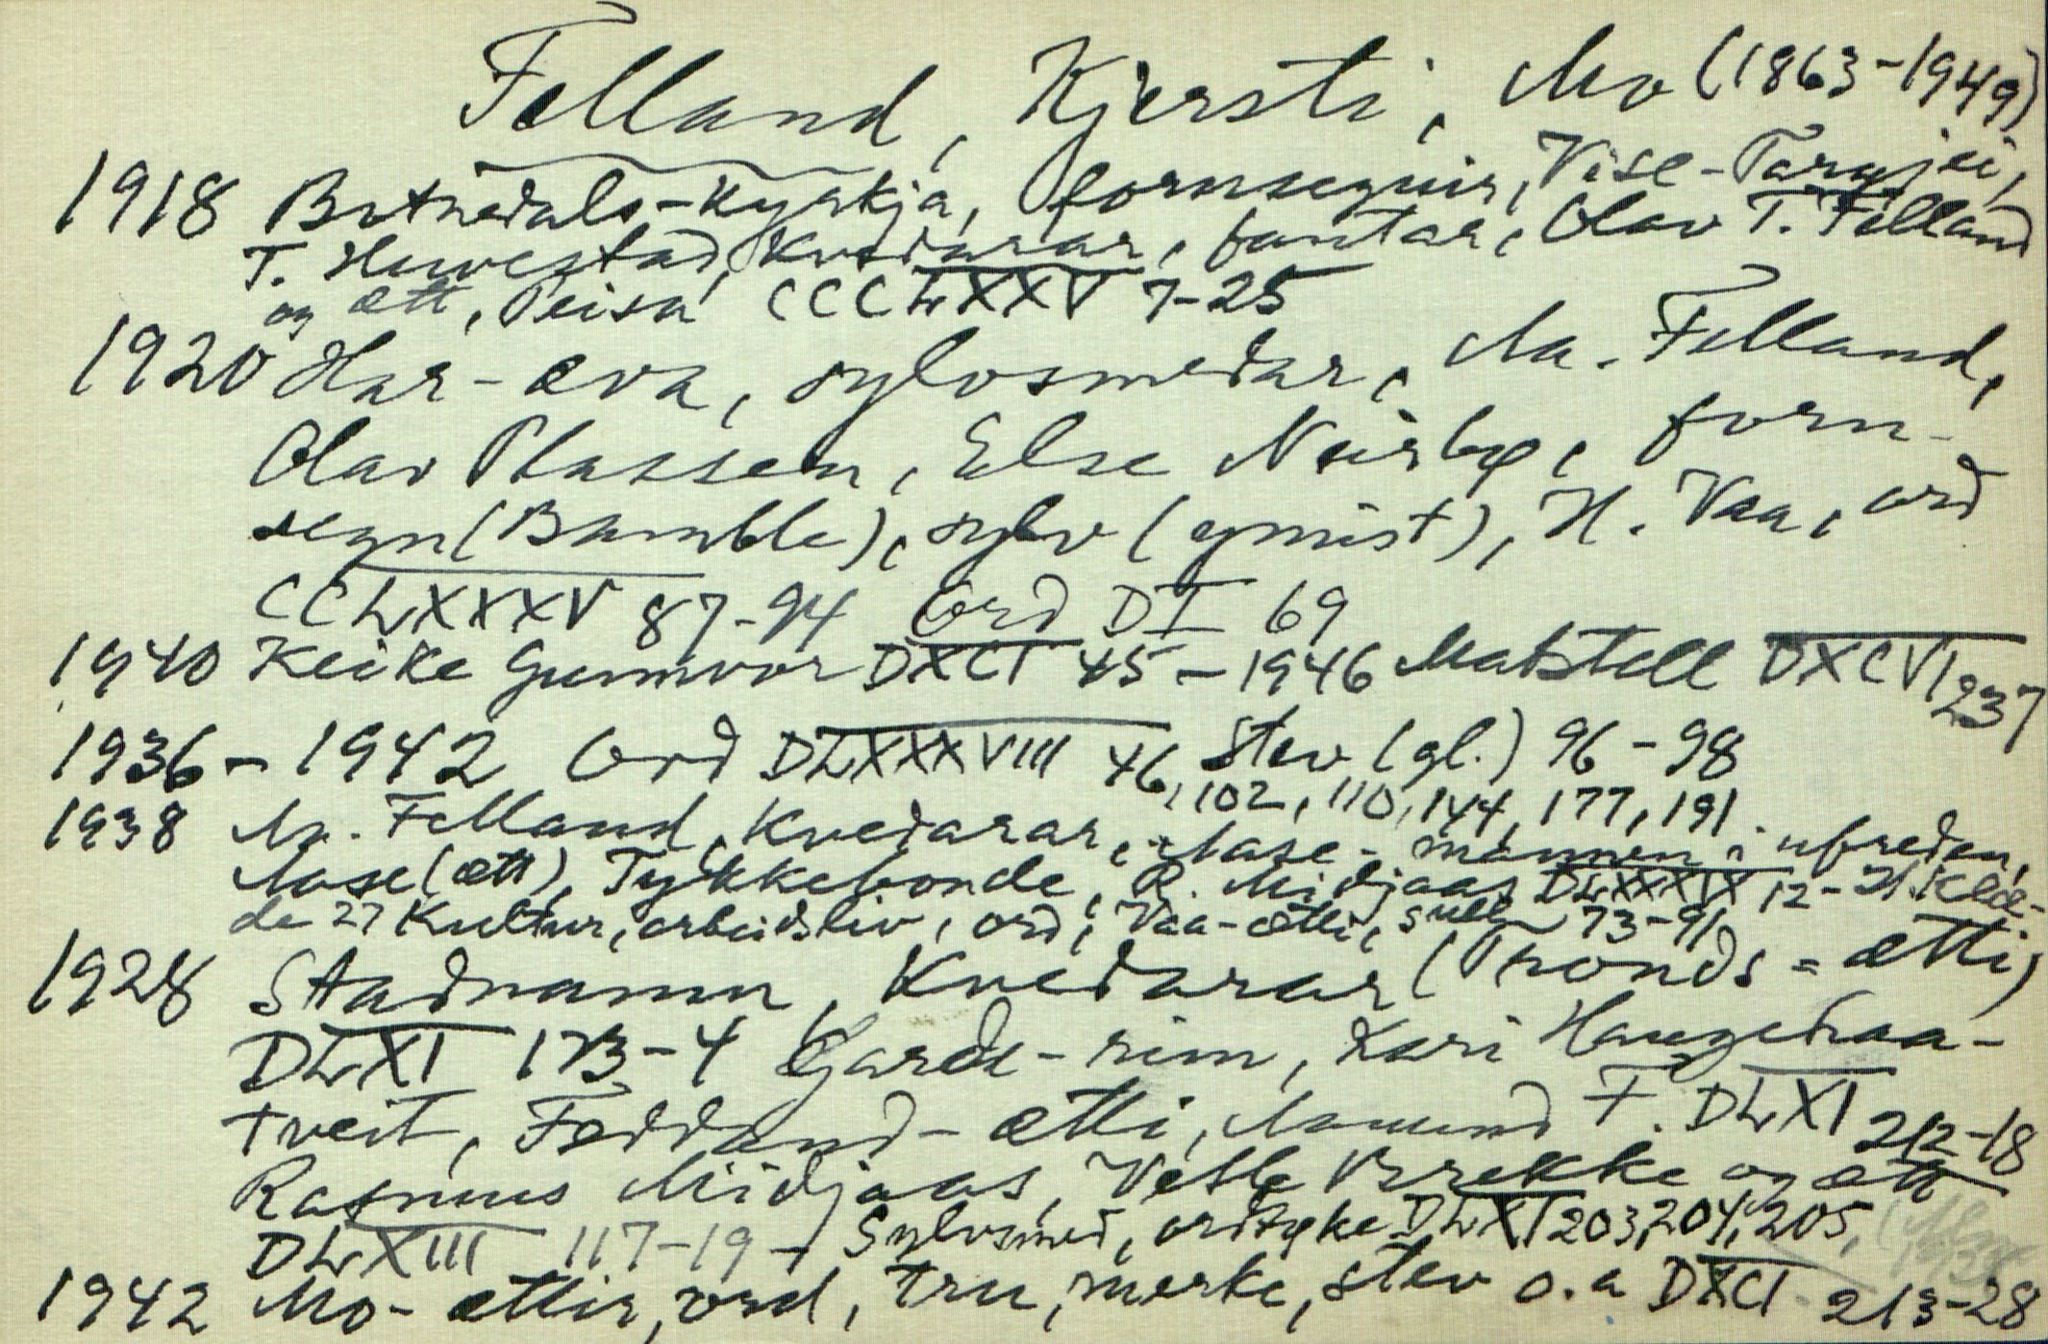 Felland, Kjersti, Mo (1863-1949)
1918 Botnedals-kyrkja, fornsegnir, Vise-Targjei,
T. Huvestad, Kvedarar, fantar, Olav T. Felland
og ætt, Peisa CCCLXXV 7-25
1920 Har-æva, sylvsmedar, Aa. Felland,
Olav Plassen, Else Neirby, forn-
segn (Bamble), sylv (gmist), H. Vaa, ord
CCLXXXV 87-94 Ord DI 69
1940 Keike Gunnvor DXCI 45-1946 Matstell DXCVI 237
1936-1942 Ord DLXXXVIII 46, Stev (gl.) 96-98
102, 110, 144, 177, 191
1938 Aa. Felland, Kvedarar, Aase-mannen i ufreden,
Aase (ætt), Tykkebonde, R. Midjaas DLXXXIX 12-21 Klæ-
de 27 Kultur, arbeidsliv, ord, Vaa-ætti, sull 73-91
1928 Stadnamn, Kvedarar (Tronds-ætti)
DLXI 173-4 Gards-rim, Kari Haugetraa-
tveit, Felland-ætti, Aamund F. DLXI 212-18
Rasmus Midjaas, Vesle Brekke og ætt
DLXIII 117-19 - Sylvsmed, ordtøke DLXI 203, 204, 205,
1942 Mo-ættir, ord, tru, merke, stev o.a DXCI 213-28